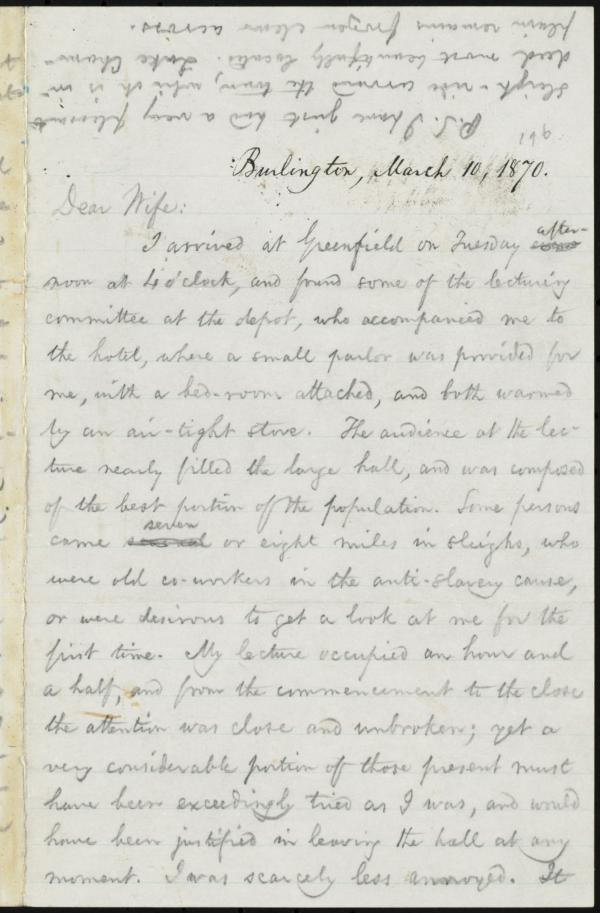 P.S. I have just had a very pleasant
sleigh-ride around the town, which is in-
deed most beautifully located. Lake Cham-
plain remains frozen clear across.
Burlington, March 10, 1870.
Dear Wife:
I arrived at Greenfield on Tuesday after-
noon at 4 o'clock, and found some of the lecturing
committee at the depot, who accompanied me to
the hotel, where a small parlor was provided for
me, with a bed-room attached, and both warmed
by an air-tight stove. The audience at the lec-
ture nearly filled the large hall, and was composed
of the best portion of the population. Some persons
came seven or eight miles in sleighs, who
were old co-workers in the anti-slavery cause,
or were desirous to get a look at me for the
first time. My lecture occupied an hour and
a half, and from the commencement to the close
the attention was close and unbroken; yet a
very considerable portion of those present must
have been exceedingly tried as I was, and would
have been justified in leaving the hall at any
moment. I was scarcely less annoyed. It